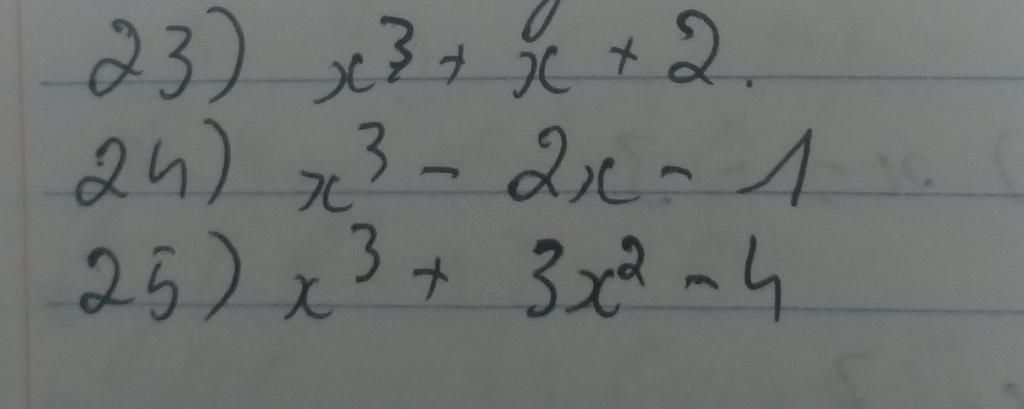 23) x³ + x + 2.
24) x³ - 2x - 1
25) x³ + 3x² - 4